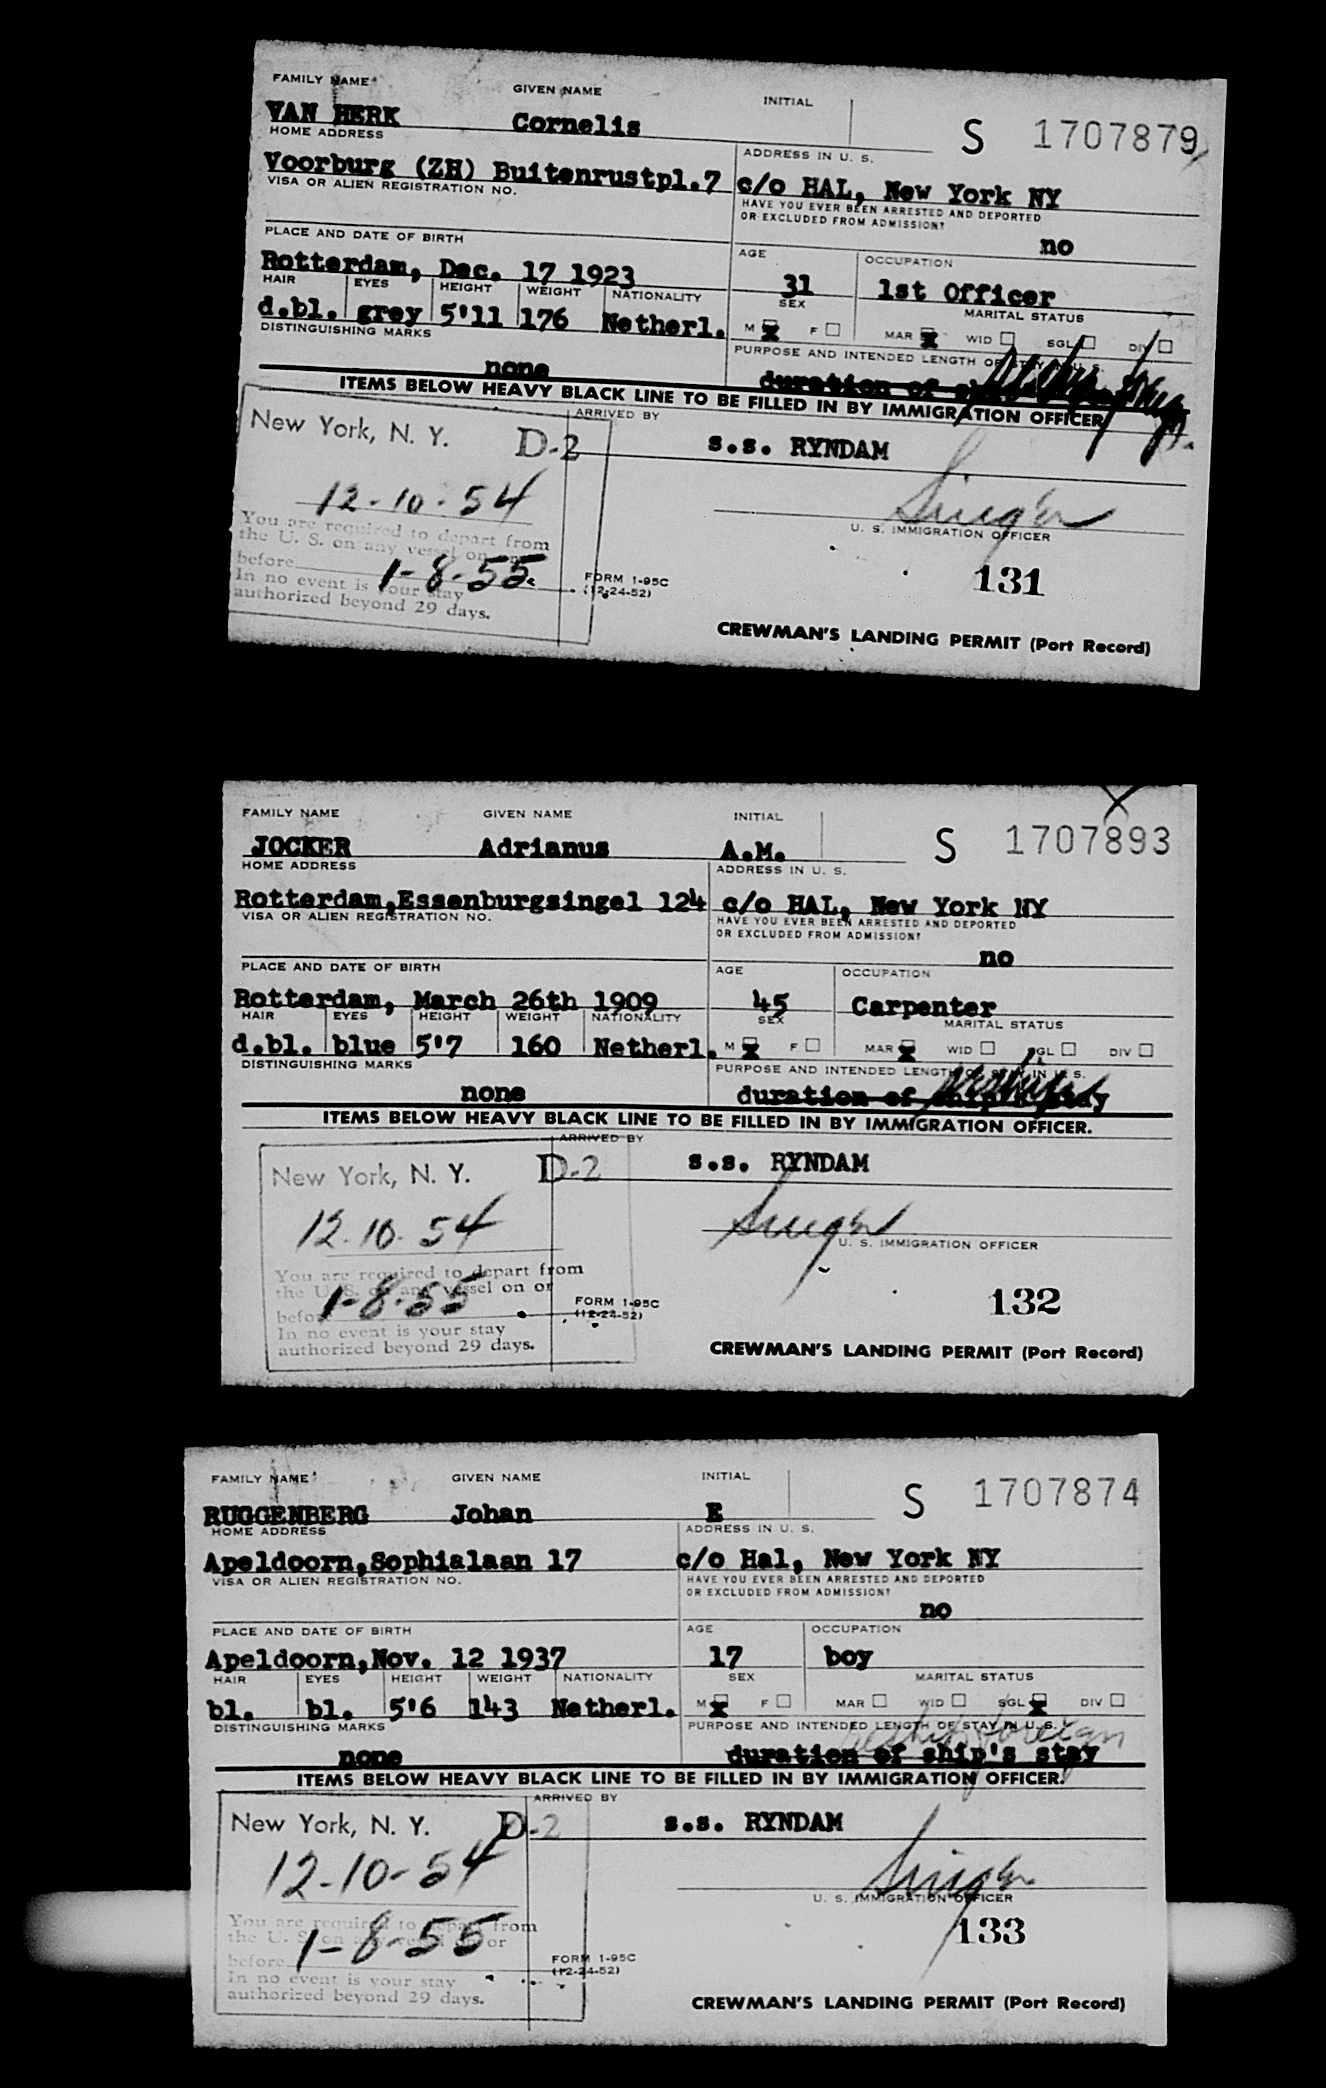 FAMILY NAME GIVEN NAME INITIAL
VAN HERK Cornelis S 1707879
HOME ADDRESS ADDRESS IN U. S.
Voorburg (ZH) Buitenrustpl.7 c/o HAL, New York NY
VISA OR ALIEN REGISTRATION NO. HAVE YOU EVER BEEN ARRESTED AND DEPORTED
OR EXCLUDED FROM ADMISSION?
no
PLACE AND DATE OF BIRTH AGE OCCUPATION
Rotterdam, Dec. 17 1923 31 1st Officer
HAIR EYES HEIGHT WEIGHT NATIONALITY SEX MARITAL STATUS
d.bl. grey 5'11 176 Netherl. M X F MAR X WID SGL DIV
DISTINGUISHING MARKS PURPOSE AND INTENDED LENGTH OF
none duration of
ITEMS BELOW HEAVY BLACK LINE TO BE FILLED IN BY IMMIGRATION OFFICER
New York, N. Y. D-2 ARRIVED BY
s.s. RYNDAM
12-10-54
Singer
You are required to depart from
the U. S. on any vessel on or
U. S. IMMIGRATION OFFICER
before 1-8-55.
In no event is your stay
authorized beyond 29 days.
FORM 1-95C
(12-24-52)
131
CREWMAN'S LANDING PERMIT (Port Record)
FAMILY NAME GIVEN NAME INITIAL
JOCKER Adrianus A.M. S 1707893
HOME ADDRESS ADDRESS IN U. S.
Rotterdam,Essenburgsingel 124 c/o HAL, New York NY
VISA OR ALIEN REGISTRATION NO. HAVE YOU EVER BEEN ARRESTED AND DEPORTED
OR EXCLUDED FROM ADMISSION?
no
PLACE AND DATE OF BIRTH AGE OCCUPATION
Rotterdam, March 26th 1909 45 Carpenter
HAIR EYES HEIGHT WEIGHT NATIONALITY SEX MARITAL STATUS
d.bl. blue 5'7 160 Netherl. M X F MAR X WID SGL DIV
DISTINGUISHING MARKS PURPOSE AND INTENDED LENGTH OF STAY IN U. S.
none duration of ship's stay
ITEMS BELOW HEAVY BLACK LINE TO BE FILLED IN BY IMMIGRATION OFFICER.
New York, N. Y. D-2 ARRIVED BY
s.s. RYNDAM
12-10-54
Singer
U. S. IMMIGRATION OFFICER
You are required to depart from
the U. S. on any vessel on or
before 1-8-55
In no event is your stay
authorized beyond 29 days.
FORM 1-95C
(12-24-52)
132
CREWMAN'S LANDING PERMIT (Port Record)
FAMILY NAME GIVEN NAME INITIAL
RUGGENBERG Johan E S 1707874
HOME ADDRESS ADDRESS IN U. S.
Apeldoorn,Sophialaan 17 c/o Hal, New York NY
VISA OR ALIEN REGISTRATION NO. HAVE YOU EVER BEEN ARRESTED AND DEPORTED
OR EXCLUDED FROM ADMISSION?
no
PLACE AND DATE OF BIRTH AGE OCCUPATION
Apeldoorn,Nov. 12 1937 17 boy
HAIR EYES HEIGHT WEIGHT NATIONALITY SEX MARITAL STATUS
bl. bl. 5'6 143 Netherl. M X F MAR WID SGL X DIV
DISTINGUISHING MARKS PURPOSE AND INTENDED LENGTH OF STAY IN U. S.
reship foreign
none duration of ship's stay
ITEMS BELOW HEAVY BLACK LINE TO BE FILLED IN BY IMMIGRATION OFFICER.
New York, N. Y. D-2 ARRIVED BY
s.s. RYNDAM
12-10-54
Singer
U. S. IMMIGRATION OFFICER
You are required to depart from
the U. S. on any vessel on or
before 1-8-55
In no event is your stay
authorized beyond 29 days.
FORM 1-95C
(12-24-52)
133
CREWMAN'S LANDING PERMIT (Port Record)